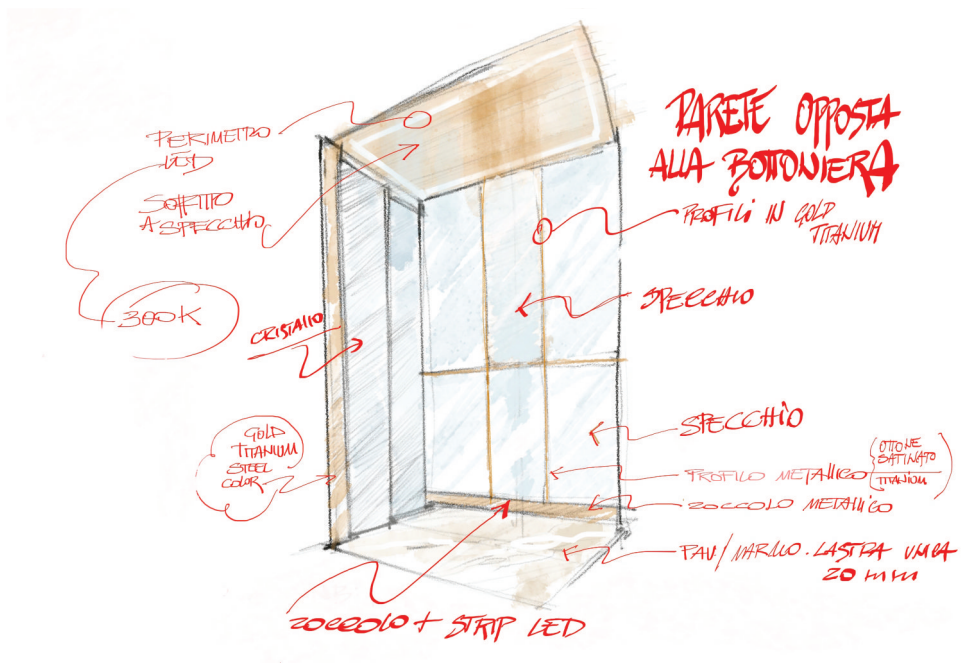 PARETE OPPOSTA
ALLA BOTTONIERA
PERIMETRO
LED
SOFFITTO
A SPECCHIO
300K
CRISTALLO
GOLD
TITANIUM
STEEL
COLOR
PROFILI IN GOLD
TITANIUM
SPECCHIO
SPECCHIO
PROFILO METALLICO
OTTONE
SATINATO
TITANIUM
ZOCCOLO METALLICO
PAV/MARMO. LASTRA UNICA
20 mm
ZOCCOLO + STRIP LED